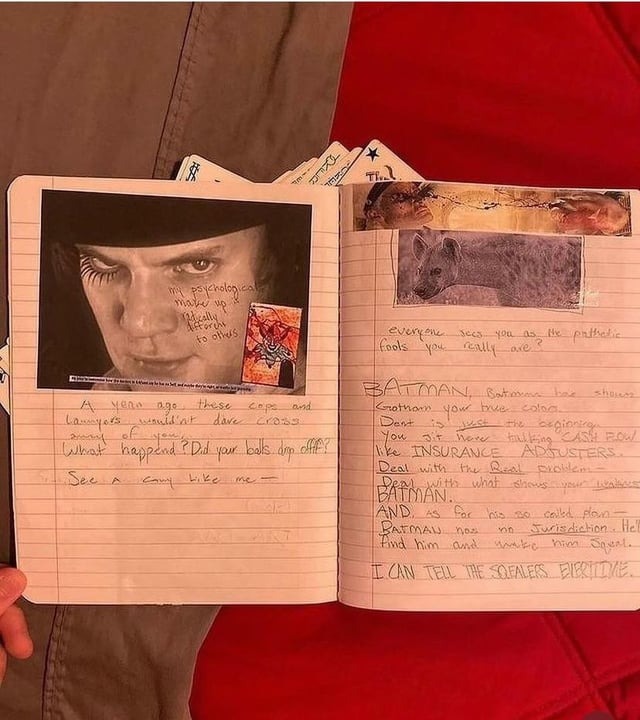 my psychological
make up is
radically
different
to others
A year ago, these cops and
Lawyers wouldn't dare cross
any of you,
What happend? Did your balls drop off?
See a Guy Like me —
everyone sees you as the pathetic
fools you really are?
BATMAN, Batman has shown
Gotham your true colors.
Dent is just the beginning
You sit here talking CASH FLOW
like INSURANCE ADJUSTERS.
Deal with the Real problem—
Deal with what shows your
BATMAN.
AND, as for his so called plan —
BATMAN has no Jurisdiction. He'll
find him and make him Squeal.
I CAN TELL THE SQEALERS EVERITIME.